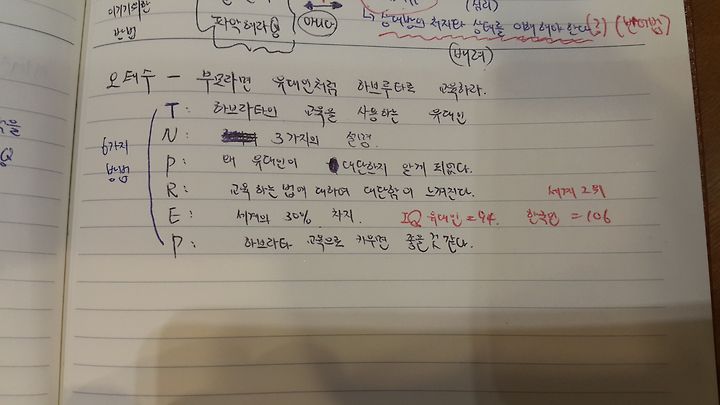 이기기위한
방법
파악해라
아니다
(심리)
↳ 상대방의 처지나 상태를 이해해야 한다 (반어법)
(배려)
오태수 - 부모라면 유대인처럼 하브루타로 교육하라.
6가지
방법
T: 하브라타의 교육을 사용하는 유대인
N: 3가지의 설명
P: 왜 유대인이 대단한지 알게 되었다.
R: 교육하는법에 대하여 대단함이 느껴진다. 세계 2위
E: 세계의 30% 차지. IQ 유대인=94. 한국인 =106
P: 하브라타 교육으로 키우면 좋을것 같다.